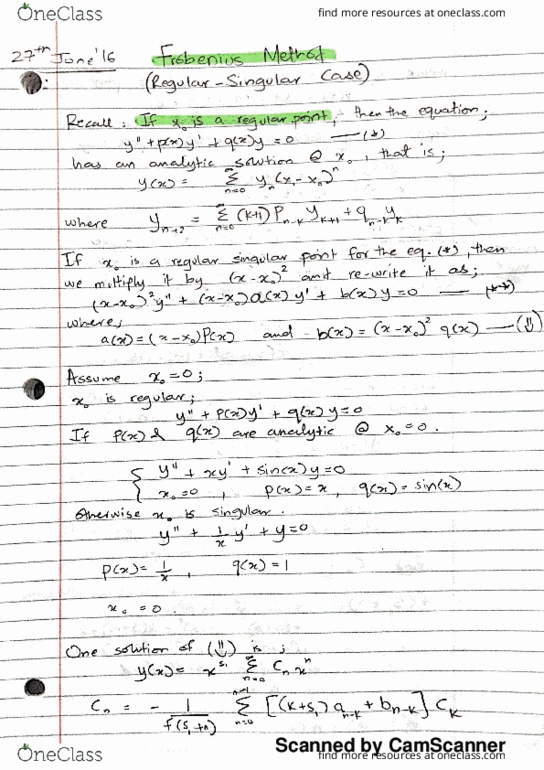 OneClass
find more resources at oneclass.com
27th June'16 Frobenius Method
(Regular-Singular Case)
Recall: If x₀ is a regular point, then the equation;
y" + p(x)y' + q(x)y = 0 —(*)
has an analytic solution @ x₀, that is;
y(x) = ∞Σn=0 yₙ(x-x₀)ⁿ
where yₙ₊₂ = Σn=0 (k+1) Pₙ₋ₖ yₖ₊₁ + qₙ₋ₖ yₖ
If x₀ is a regular singular point for the eq. (*), then
we multiply it by (x-x₀)² and re-write it as;
(x-x₀)²y" + (x-x₀)a(x)y' + b(x)y = 0 — (**)
where,
a(x) = (x-x₀)P(x) and b(x) = (x-x₀)² q(x) —(⇓)
Assume x₀ = 0;
x₀ is regular;
y" + P(x)y' + q(x)y = 0
If P(x) & q(x) are analytic @ x₀ = 0.
{ y" + xy' + sin(x)y = 0
x₀ = 0, P(x) = x, q(x) = sin(x)
Otherwise x₀ is singular.
y" + 1/x y' + y = 0
p(x) = 1/x, q(x) = 1
x₀ = 0.
One solution of (⇓) is;
y(x) = x^s₁ ∞Σn=0 Cₙ xⁿ
Cₙ = - 1/f(s₁+n) n-1Σn=0 [(k+s₁) aₙ₋ₖ + bₙ₋ₖ] Cₖ
Scanned by CamScanner
OneClass
find more resources at oneclass.com